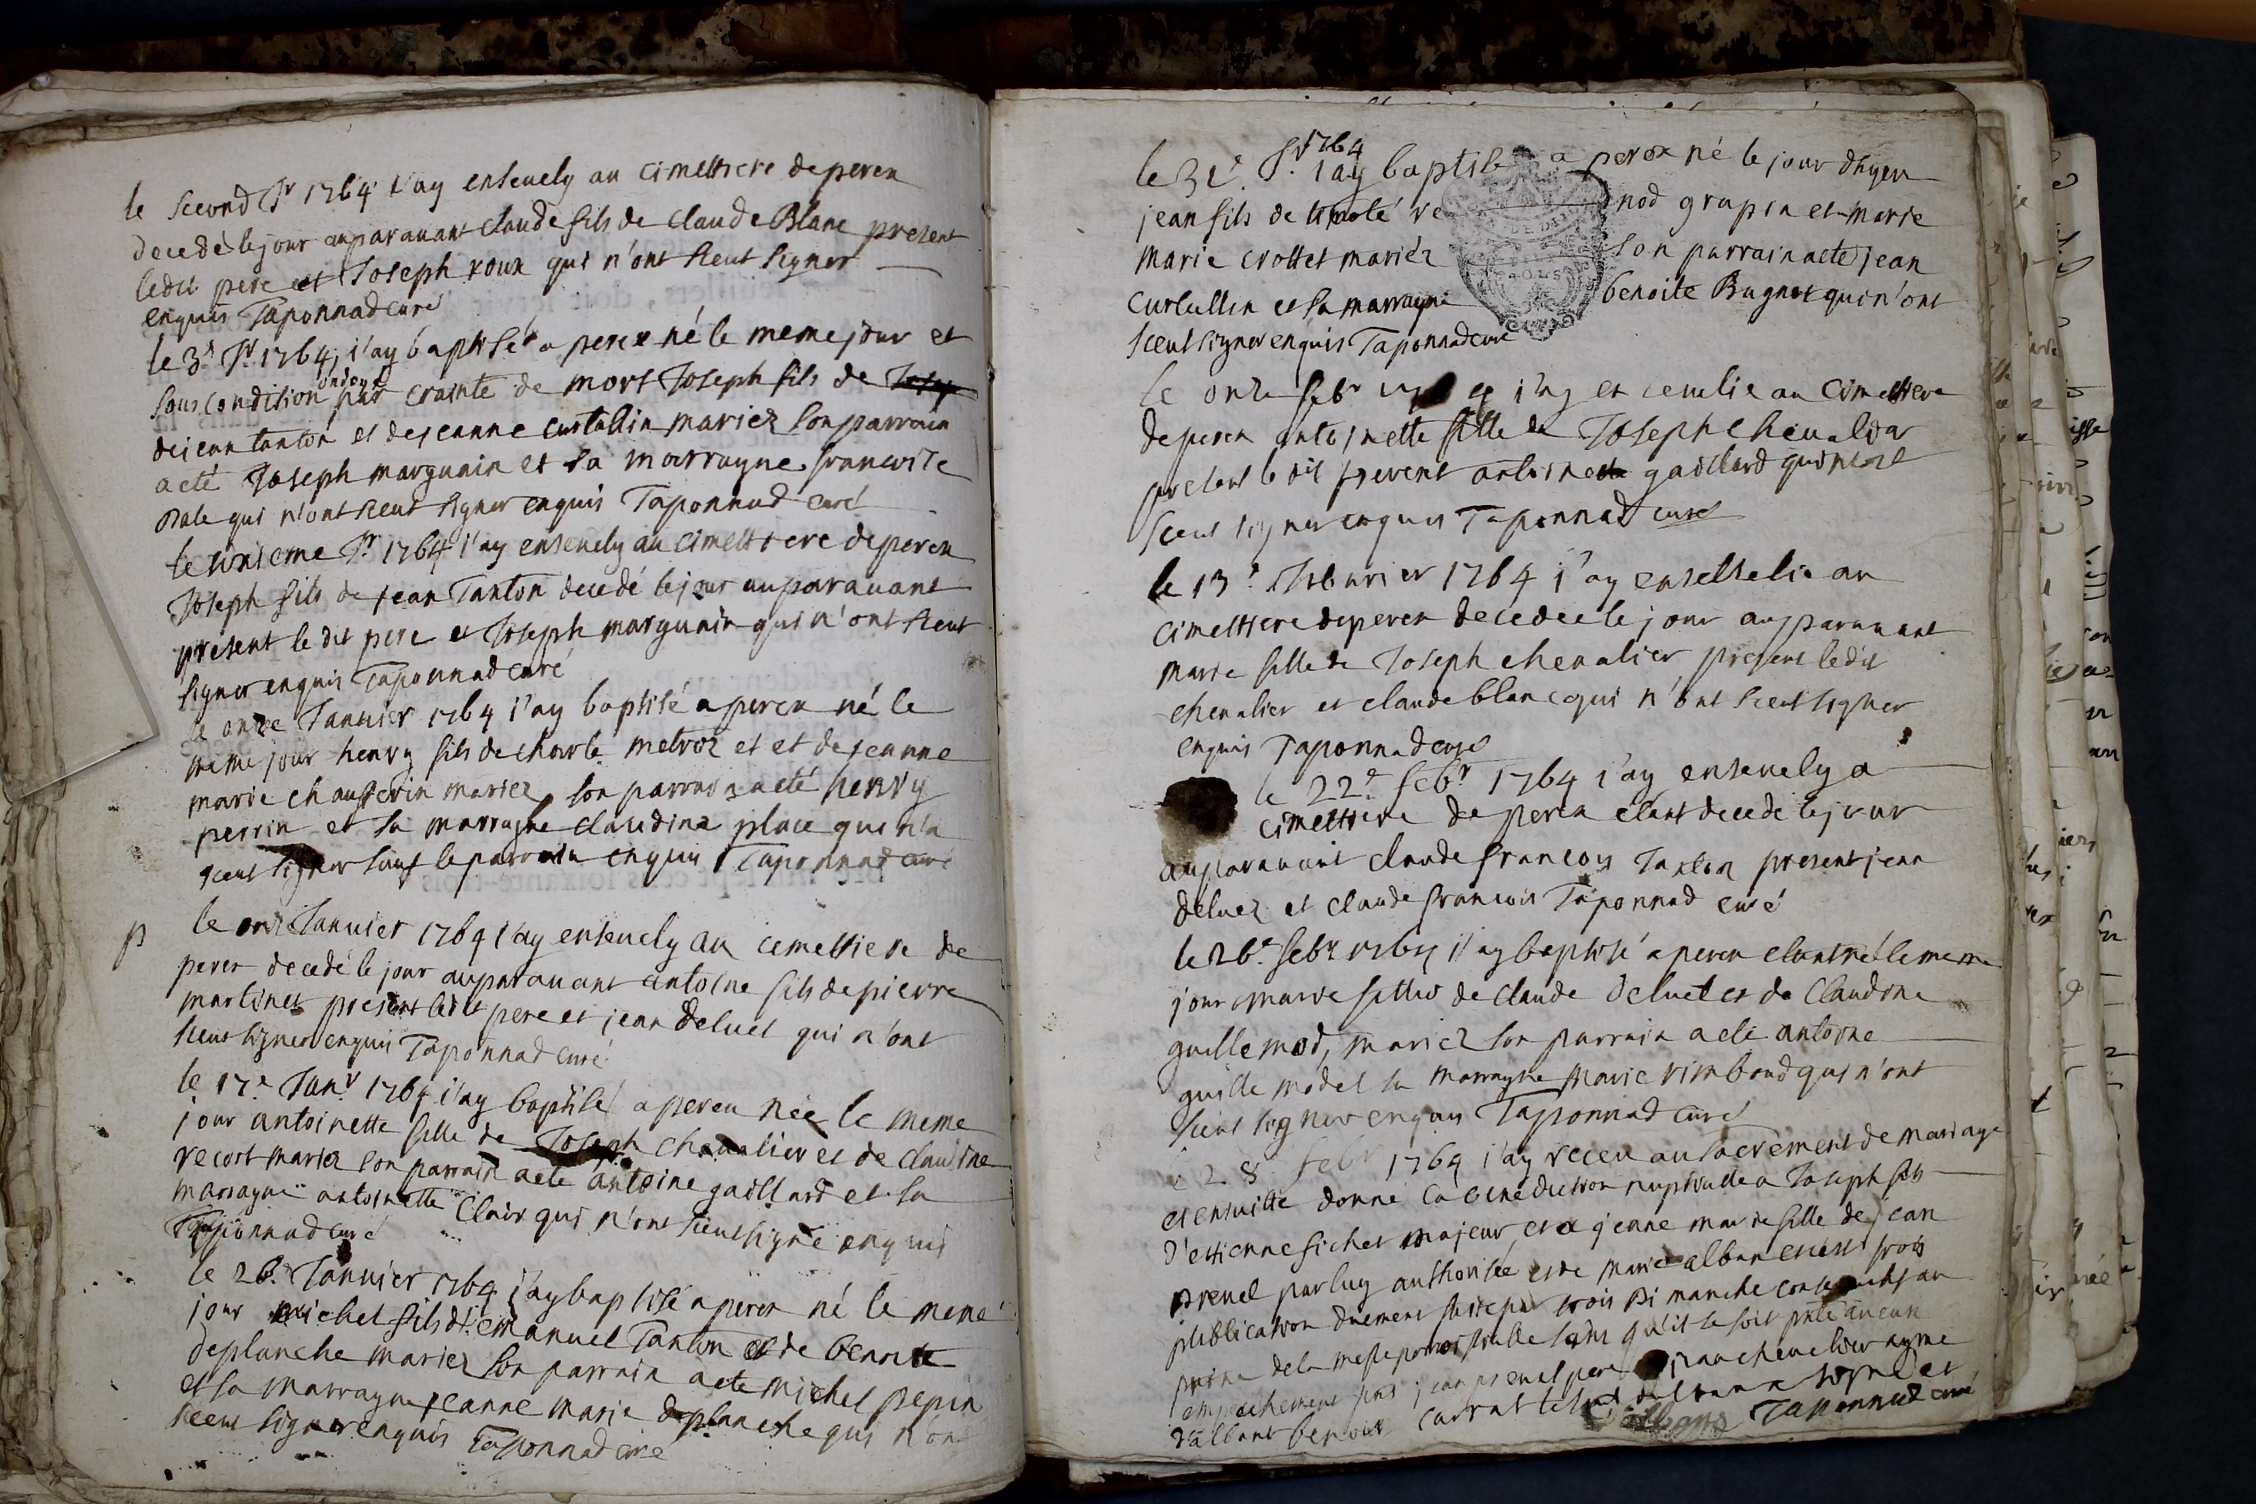 le second Jr 1764 i'ay enseuely au cimettiere de peren
decedé le jour auparauant claude fils de claude Blanc present
ledit pere et Joseph roux qui n'ont sceut signer
enquis Taponnad curé
le 3e Jr 1764, i'ay baptisé a peren né le meme jour et
sous condition ondoyé par crainte de mort Joseph fils de
de jean tanton et de jeanne curtallin mariez son parrain
a eté Joseph marguain et sa marrayne francoise
qui n'ont sceut signer enquis Taponnad curé
le sixieme Jr 1764 i'ay enseuely au cimettiere de peren
Joseph fils de jean Tanton decedé le jour auparauant
present le dit pere et Joseph marguain qui n'ont sceut
signer enquis Taponnad curé
le onze Januier 1764 i'ay baptisé a peren né le
meme jour henry fils de charle metroz et et de jeanne
marie chausserin mariez son parrain a eté henry
perrin et sa marrayne claudina place qui n'a
sceut signer sauf le parrain enquis Taponnad curé
p le onze Januier 1764 i'ay enseuely au cemettiere de
peren decedé le jour auparauant antoine fils de pierre
martinet present ledit pere et jean deluet qui n'ont
sceut signer enquis Taponnad curé
le 17e Janr 1764 i'ay baptisé a peren née le meme
jour antoinette fille de Joseph cheualier et de claudine
recort mariez son parrain a eté antoine gaillard et sa
marrayne antoinette Clair qui n'ont sceut signé enquis
Taponnad curé
le 26e Januier 1764 j'ay baptisé a peren né le meme
jour michel fils d'emanuel Tanton et de benoite
deplanche mariez son parrain a eté michel pepin
et sa marrayne jeanne marie deplanche qui n'ont
sceut signer enquis Taponnad curé
le 31e Jr 1764 i'ay baptisé a peren né le jour d'hyer
jean fils de grapin et marie
marie crottet mariez son parrain a eté jean
curtallin et sa marrayne benoite Bugnot qui n'ont
sceut signer enquis Taponnad curé
le onze febr i'ay au cimettiere
de peren antoinette fille de Joseph cheualier
present le dit antoine gaillard qui n'ont
sceut signer enquis Taponnad curé
le 13e feburier 1764 i'ay au
cimettiere de peren decedee le jour auparauant
marie fille de Joseph cheualier present ledit
cheualier et claude blanc qui n'ont sceut signer
enquis Taponnad curé
le 22e febr 1764 i'ay enseuely a
cimettiere de peren etant decede le jour
auparauant claude francois Tanton present jean
deluez et claude francois Taponnad curé
le 26e febr 1764 i'ay baptisé a peren etant né le meme
jour marie fille de claude deluet et de Claudine
guillemod, mariez son parrain a eté antoine
guillemod et sa marrayne marie rimboud qui n'ont
sceut signer enquis Taponnad curé
le 28 febr 1764 i'ay receu au sacrement de mariage
et ensuitte donné la benediction nuptialle a Joseph fils
d'ettienne fichet majeur, et a jeanne marie fille de jean
preuel par luy authorisée et de marie alban et trois
publication duement faite par trois dimanche consecutifs au
prone de la messe parroissialle sans qu'il se soit aucun
empechement jean preuel pere jean cheualier ayme
d'albant benoit carrat signé et
Taponnad curé